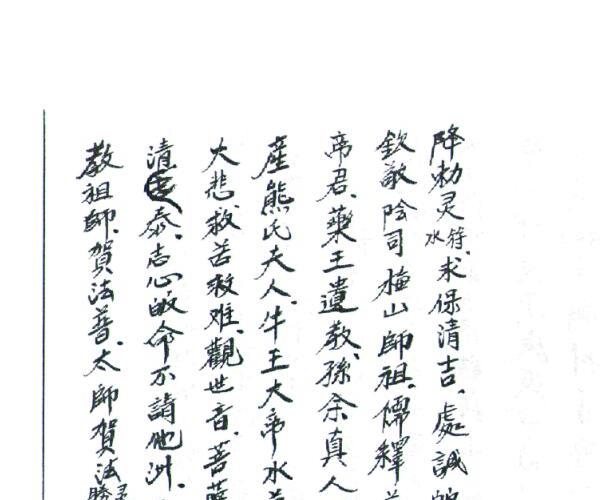 降勅灵符水、求保清吉、處誠
欽敬陰司梅山師祖、儒釋
帝君、藥王遺教、孫余真人
産熊氏夫人、牛王大帝水
大悲救苦救难、觀世音、菩薩
清泰、志心皈命不請他洲、
教祖師、賀法普、太師賀法勝